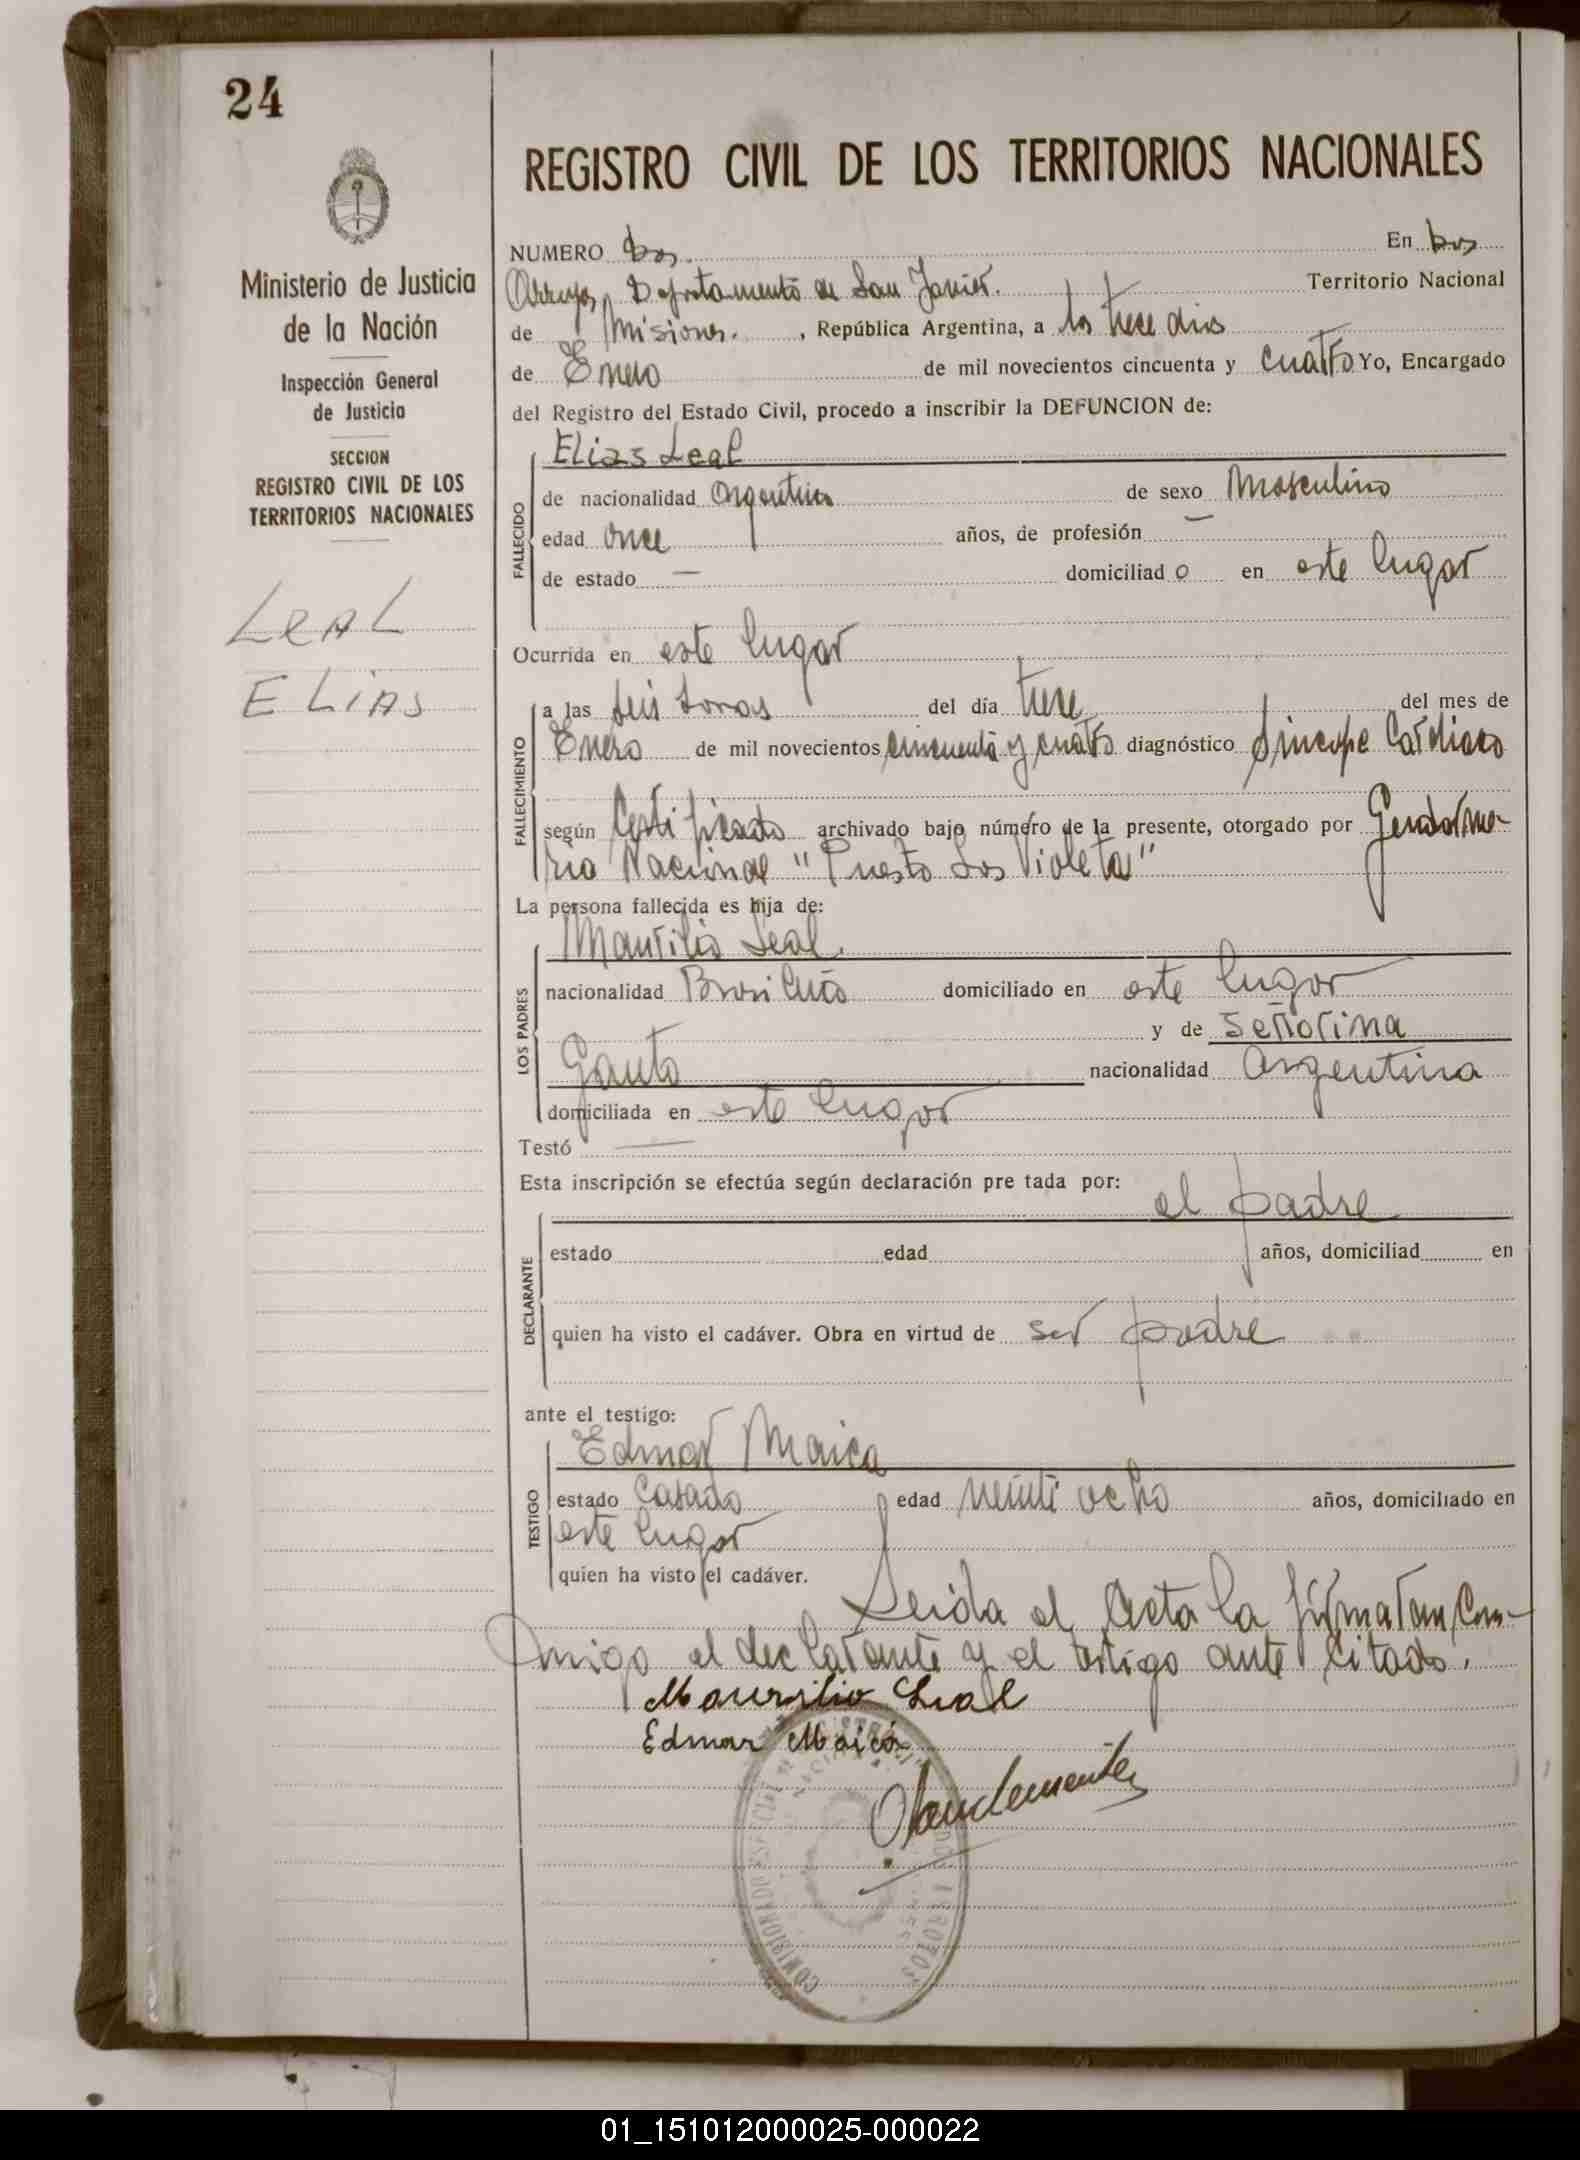 24
REGISTRO CIVIL DE LOS TERRITORIOS NACIONALES
Ministerio de Justicia
de la Nación
Inspección General
de Justicia
SECCION
REGISTRO CIVIL DE LOS
TERRITORIOS NACIONALES
LEAL
ELIAS
NUMERO Dos. En Dos
Arroyos, Departamento de San Javier. Territorio Nacional
de Misiones. , República Argentina, a los trece dias
de Enero de mil novecientos cincuenta y cuatro Yo, Encargado
del Registro del Estado Civil, procedo a inscribir la DEFUNCION de:
FALLECIDO
Elias Leal
de nacionalidad Argentina de sexo Masculino
edad once años, de profesión —
de estado — domiciliado en este lugar
Ocurrida en este lugar
FALLECIMIENTO
a las seis horas del día trece del mes de
Enero de mil novecientos cincuenta y cuatro diagnóstico Sincope Cardiaco
según Certificado archivado bajo número de la presente, otorgado por Gendarme-
ria Nacional "Puesto Las Violeta"
La persona fallecida es hija de:
LOS PADRES
Maurilio Leal.
nacionalidad Brasileño domiciliado en este lugar
y de Señorina
Gauto nacionalidad Argentina
domiciliada en este lugar
Testó —
Esta inscripción se efectúa según declaración pre tada por:
DECLARANTE
el padre
estado edad años, domiciliad en
quien ha visto el cadáver. Obra en virtud de ser padre
ante el testigo:
TESTIGO
Edmar Maica
estado Casado edad veinti ocho años, domiciliado en
este lugar
quien ha visto el cadáver.
Leida el Acta la firmaran con-
migo el declarante y el testigo ante citado.
Maurilio Leal
Edmar Maica
01_151012000025-000022